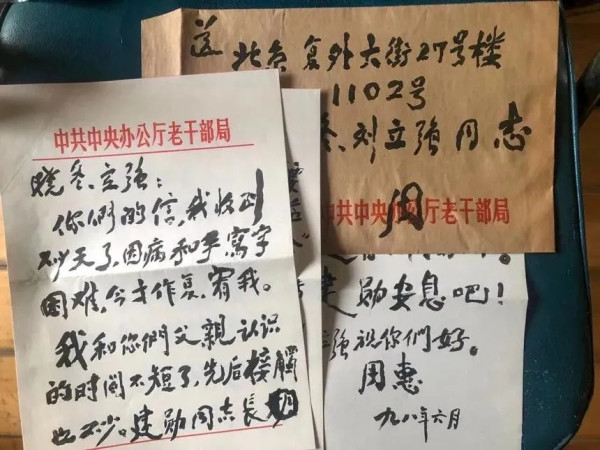 送
北京复外大街27号楼
1102号
冬、刘立强同志
中共中央办公厅老干部局
周
中共中央办公厅老干部局
晓冬、立强：
你們的信，我收到
不少天了，因病和手寫字
困难，今才作复，宥我。
我和你們父親认识
的时间不短了，先后接觸
也不少。建勋同志長期
建勋安息吧！
立强祝你們好。
周惠
九八年六月